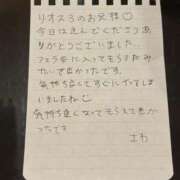 リオス3のお兄様☺
今日は遊んでくださり
ありがとうございました。
フェラ気に入ってもらえたみ
たいで良かったです。
気持ち良くてすぐにイッてしまい
ましたね☺
気持ち良くなってもらえて良か
ったです
さわ